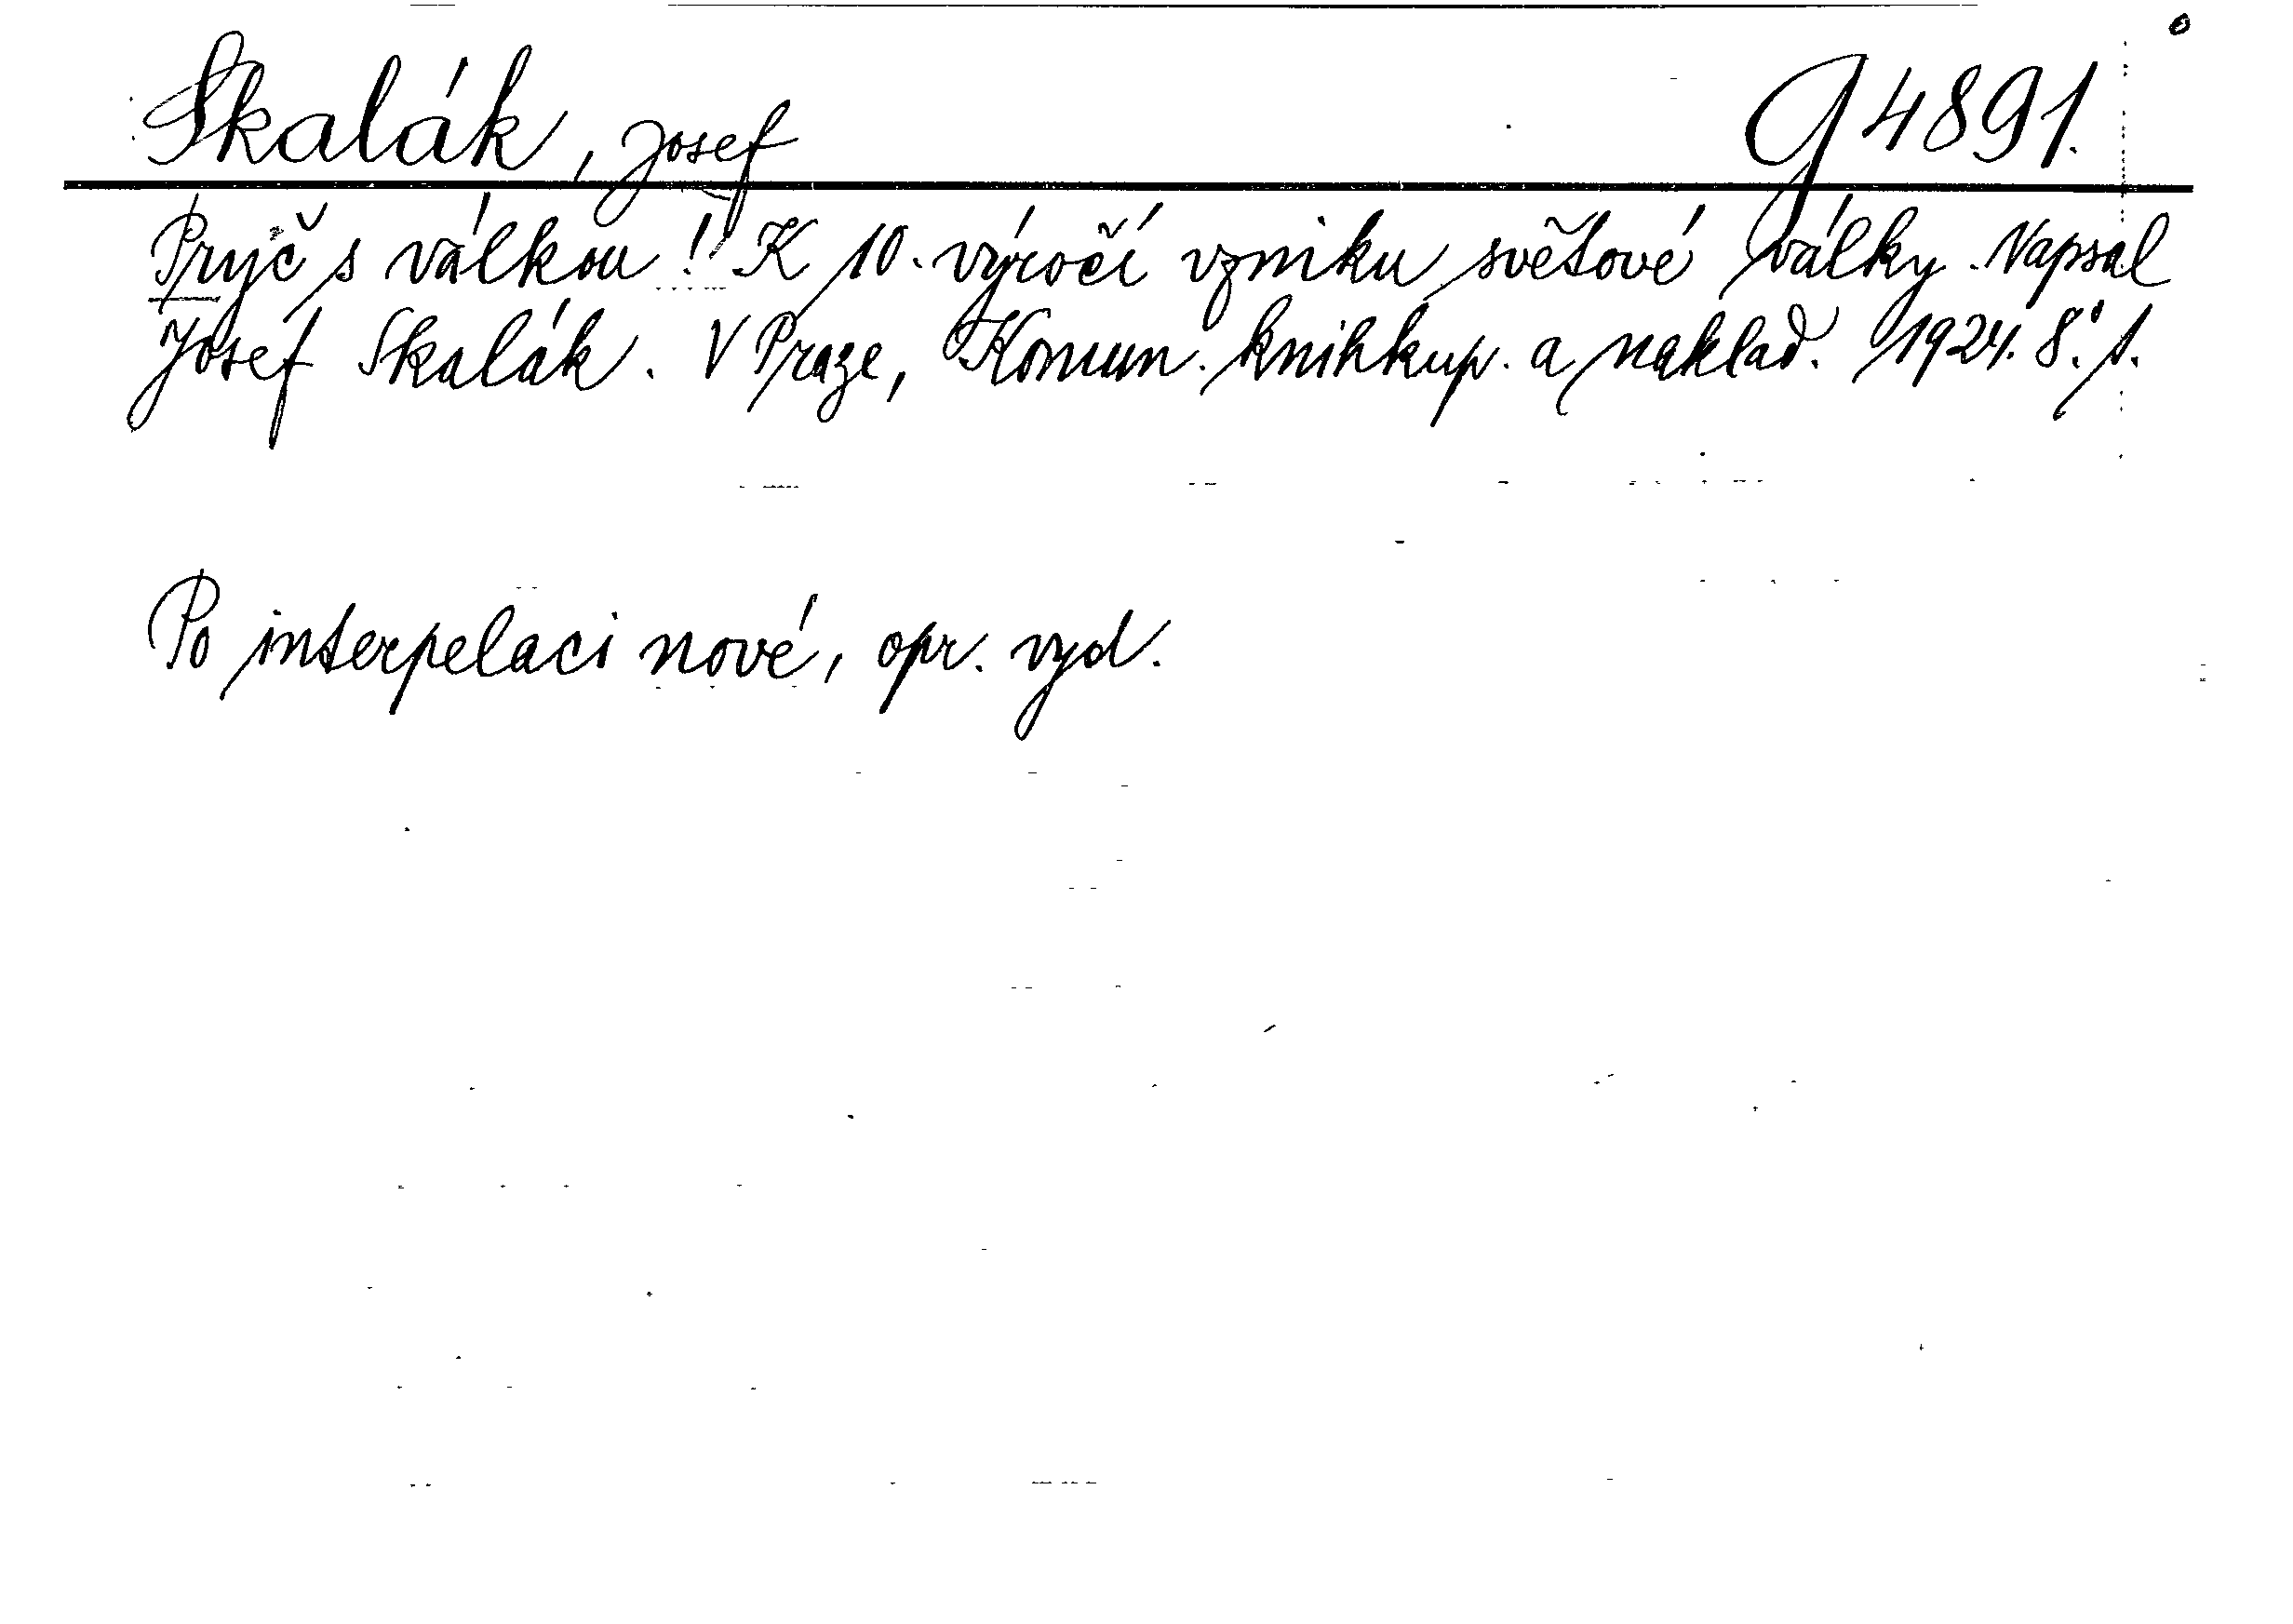 Skalák, Josef G 4891.
Pryč s válkou! K 10. výročí vzniku světové války. Napsal
Josef Skalák. V Praze, Komun. knihkup. a naklad. 1924. 8.° 1.
Po interpelaci nové, opr. vyd.